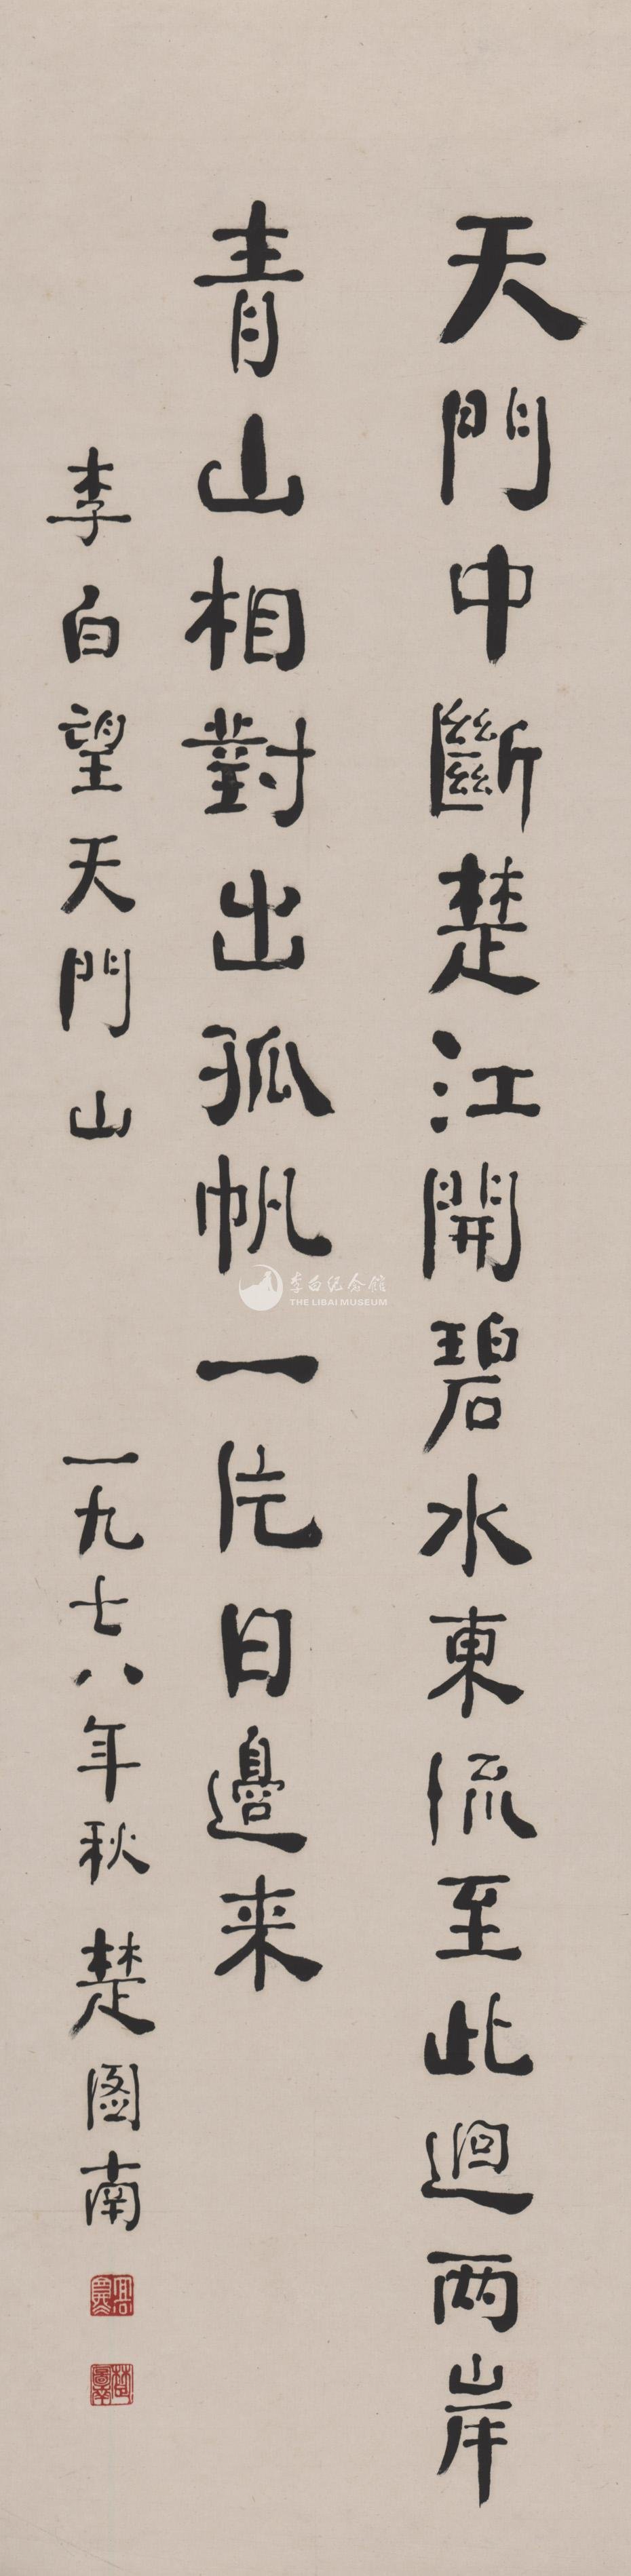 天門中斷楚江開碧水東流至此迴两岸
青山相對出孤帆一片日邊来
李白望天門山
一九七八年秋 楚图南
李白纪念馆
THE LIBAI MUSEUM